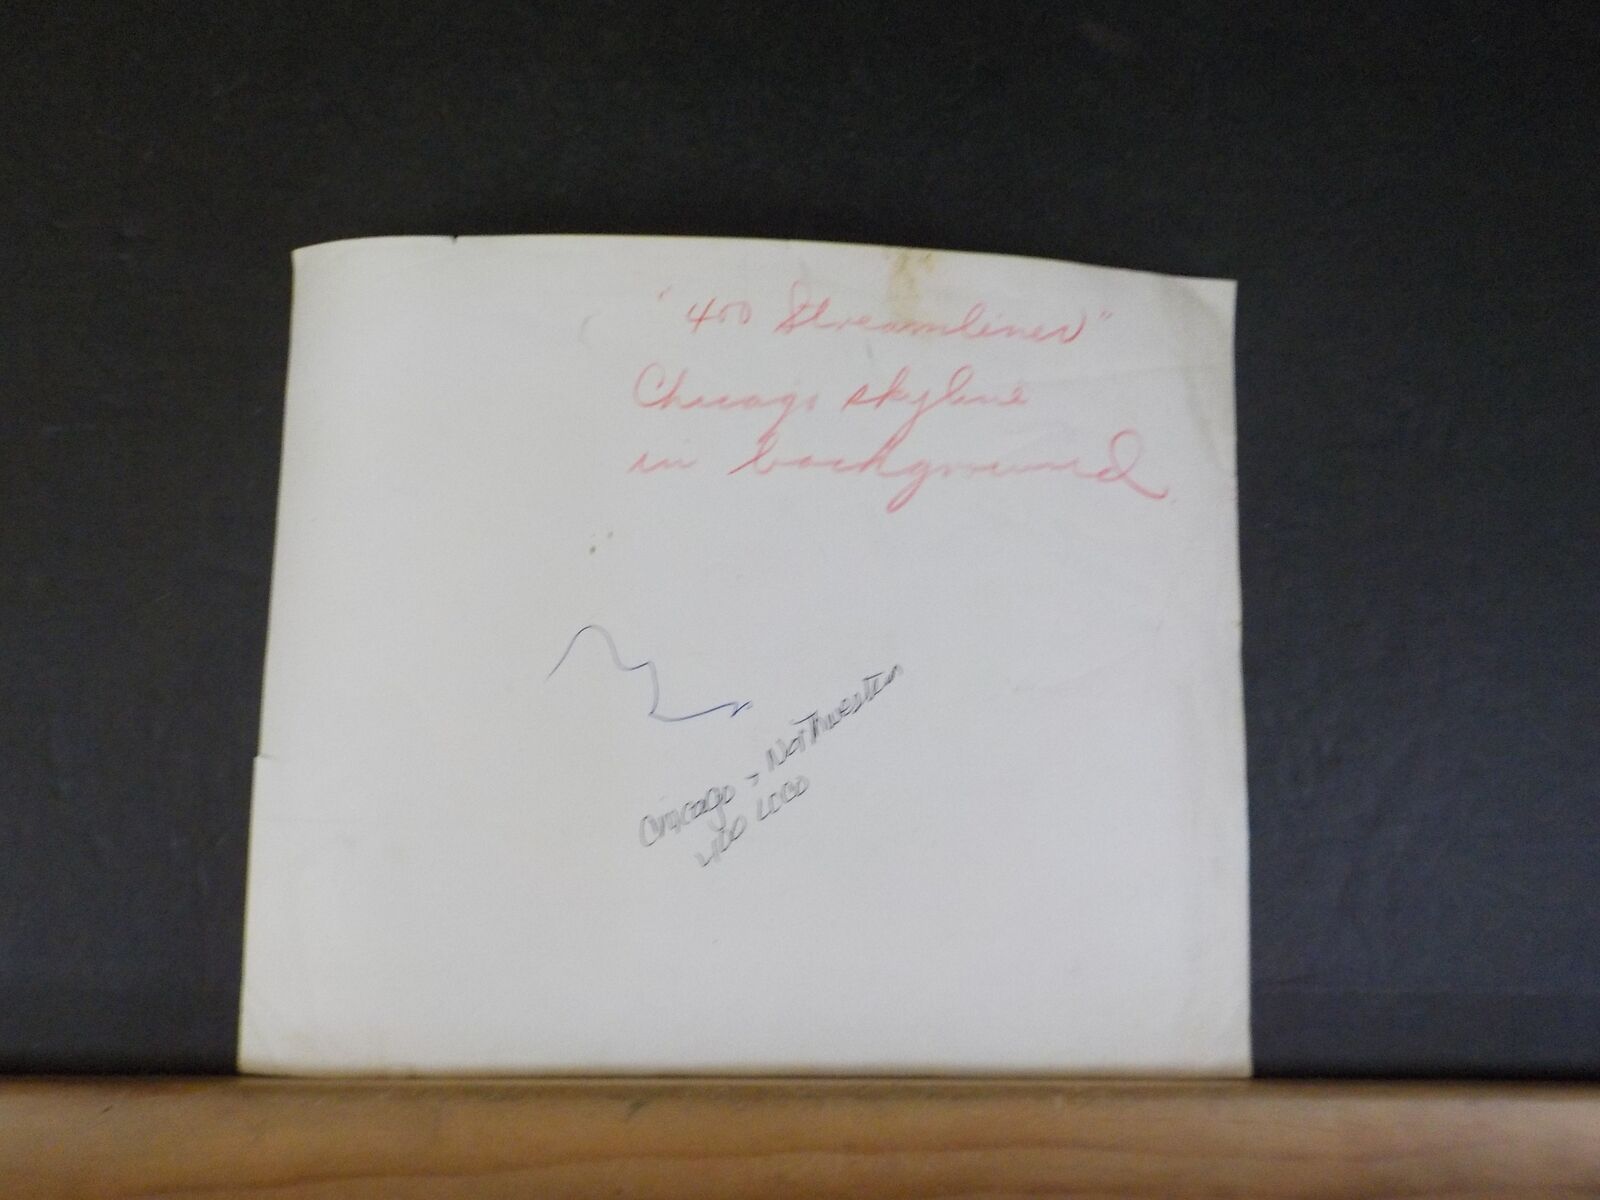 "400 Streamliner"
Chicago skyline
in background
Chicago - Northwestern
400 LOCO